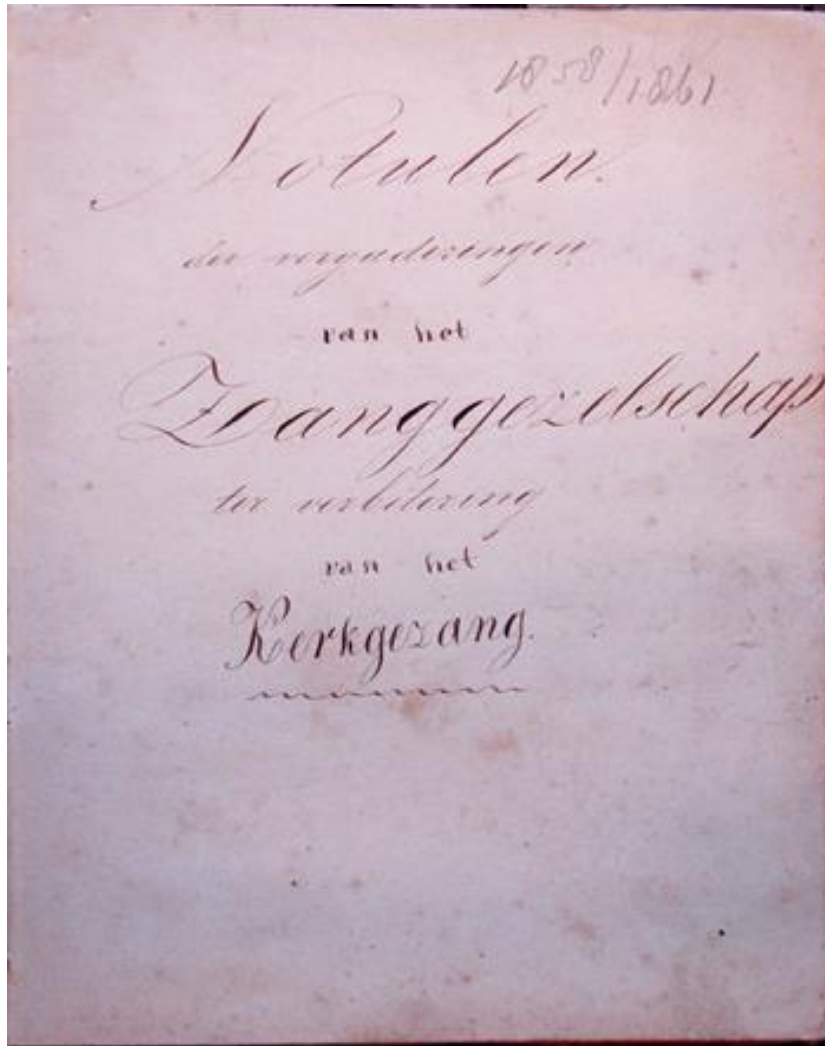 1858/1861
Notulen.
der vergaderingen
van het
Zanggezelschap
ter verbetering
van het
Kerkgezang.